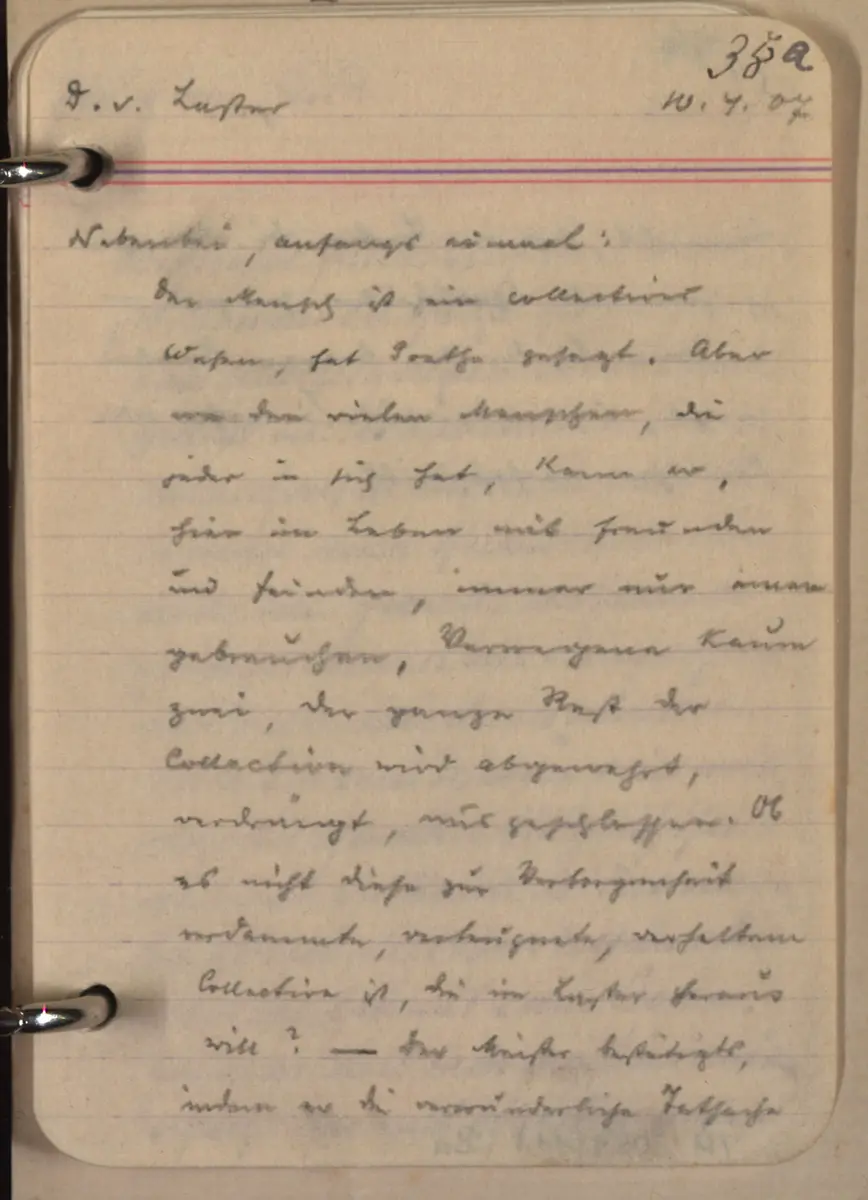 38a
D. v. Laster 10. 4. 07
Nebenbei, anfangs einmal:
Der Mensch ist ein collectives
Wesen, hat Goethe gesagt. Aber
von den vielen Menschen, die
jeder in sich hat, kann er,
hier im Leben mit Freunden
und Feinden, immer nur einen
gebrauchen, Verwegene kaum
zwei, der ganze Rest der
Collection wird abgewehrt,
verdrängt, ausgeschlossen. Ob
es nicht diese zur Verborgenheit
verdammte, verleugnete, verhaltene
Collection ist, die im Laster heraus
will? — Der Meister bestätigts,
indem er die verwunderliche Tatsache